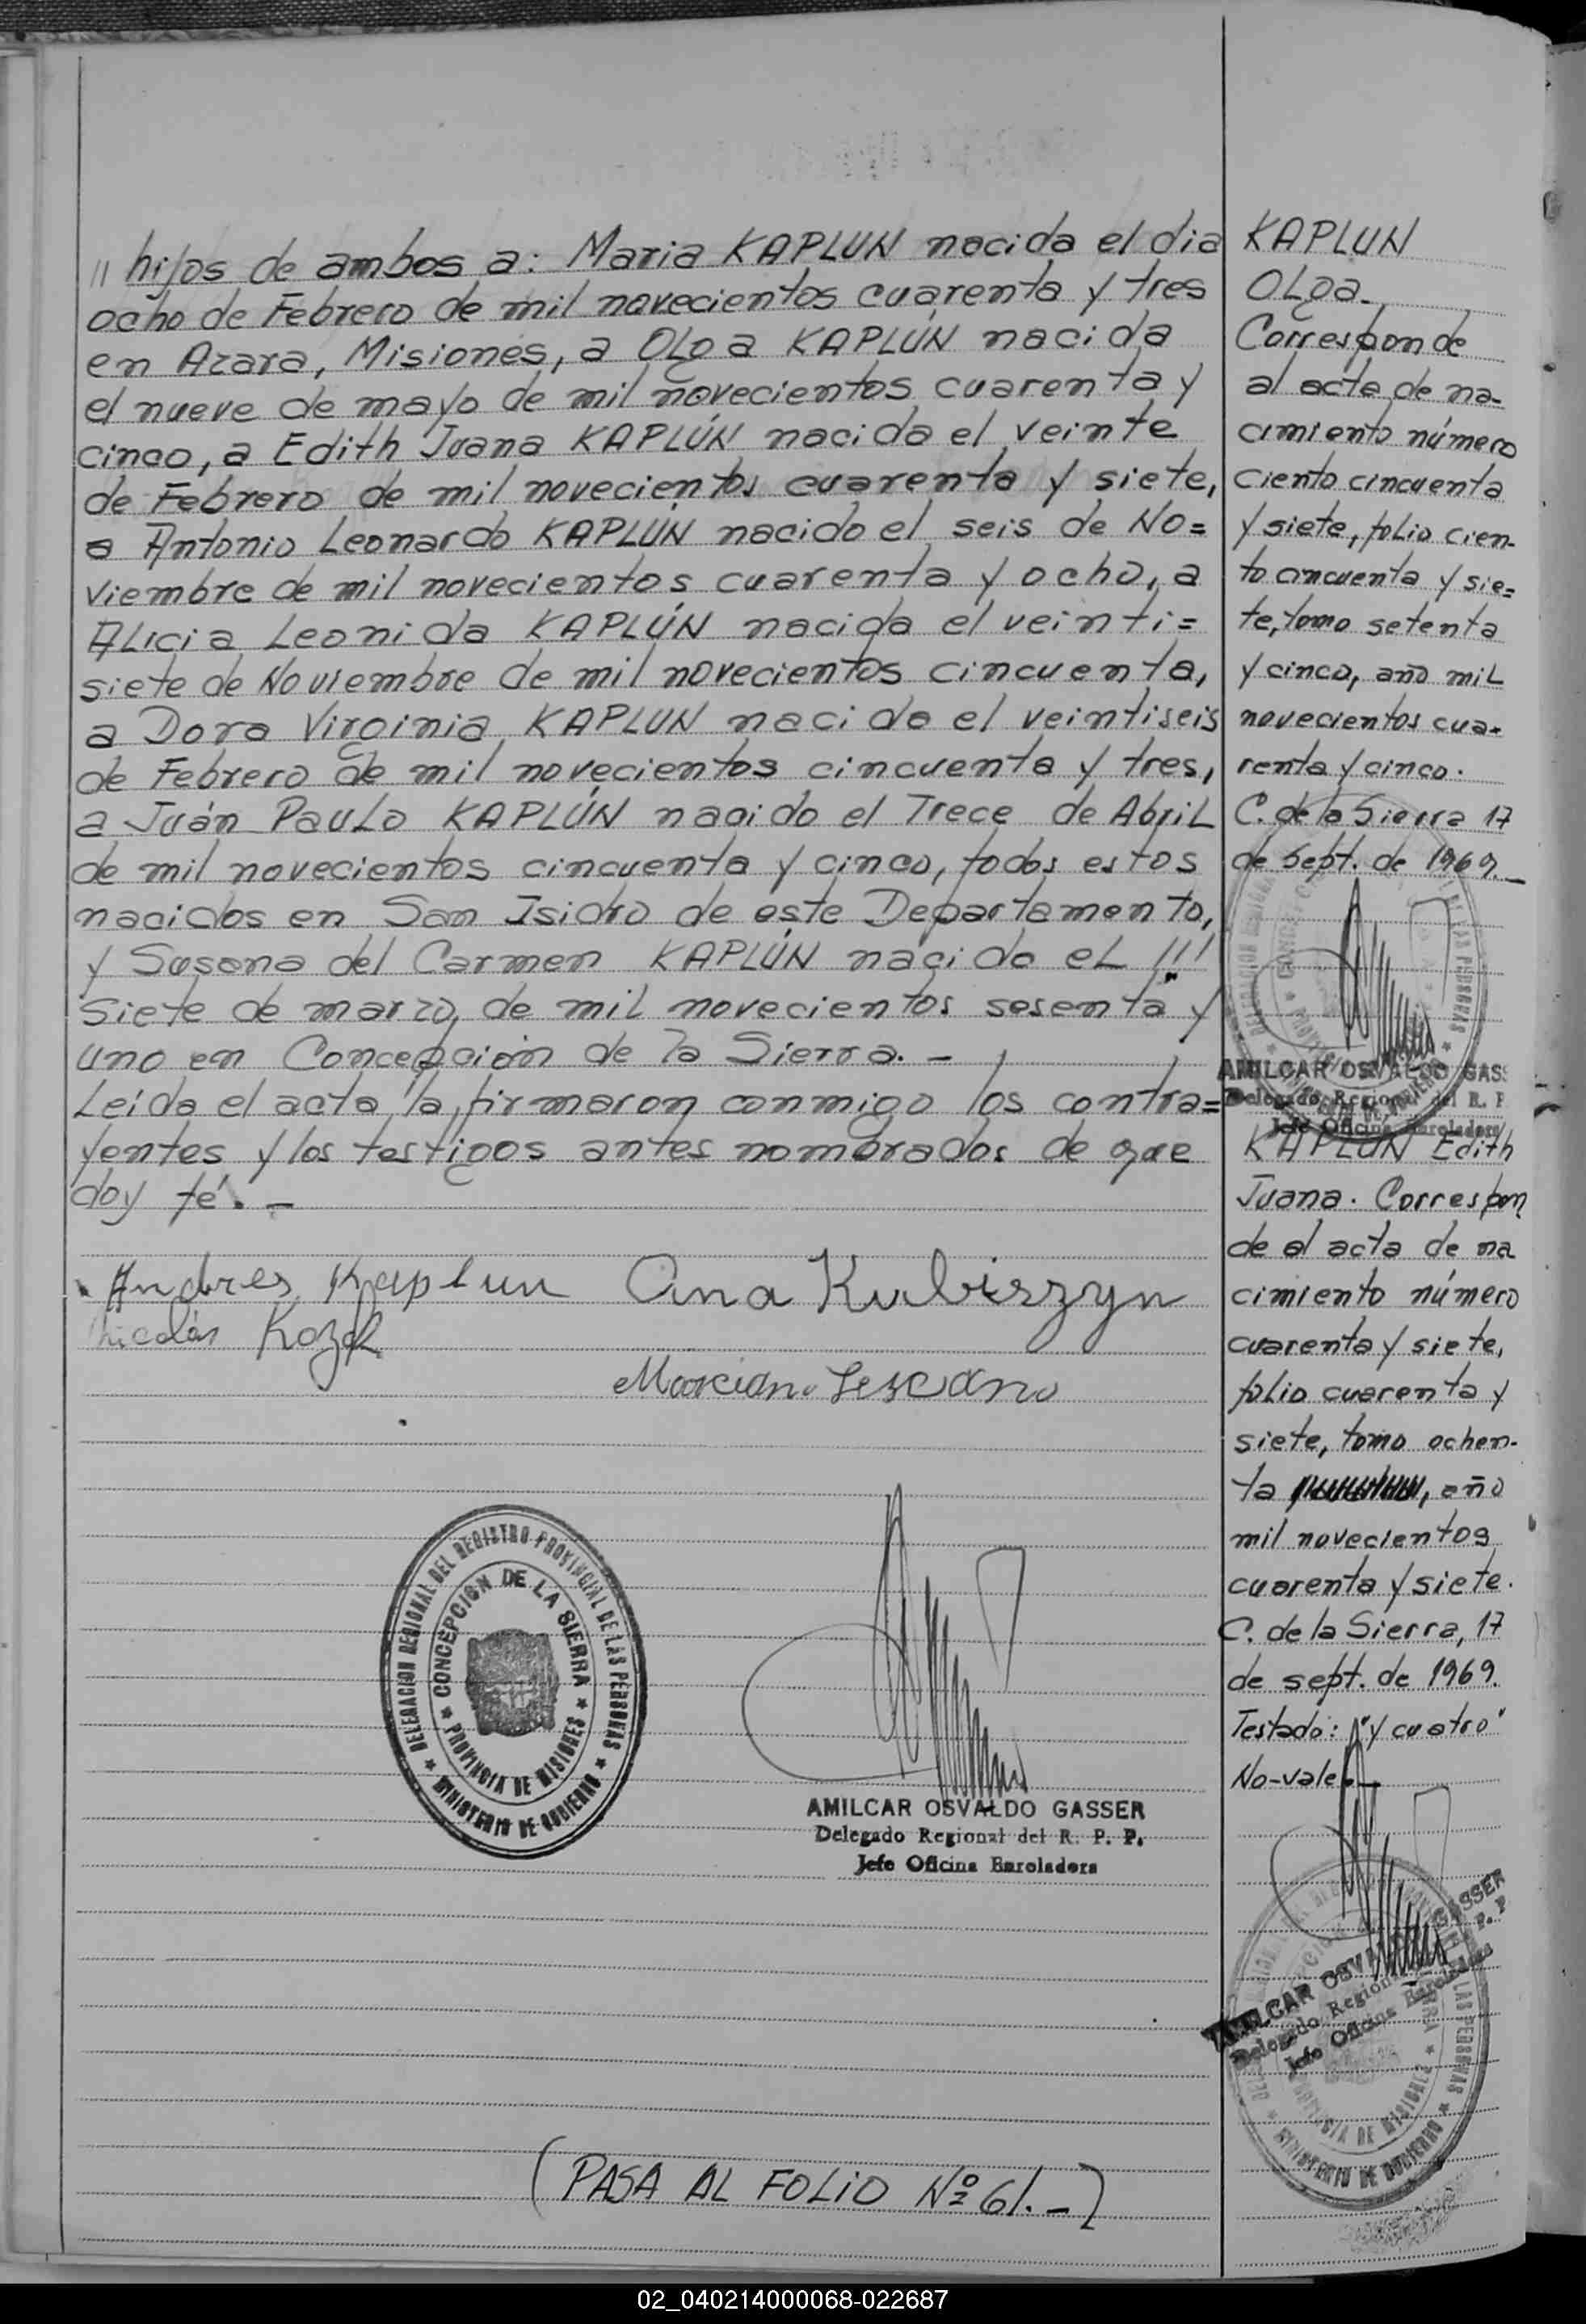 " hijos de ambos a: Maria KAPLUN nacida el dia
ocho de Febrero de mil novecientos cuarenta y tres
en Azara, Misiones, a OLga KAPLÚN nacida
el nueve de mayo de mil novecientos cuarenta y
cinco, a Edith Juana KAPLÚN nacida el veinte
de Febrero de mil novecientos cuarenta y siete,
a Antonio Leonardo KAPLÚN nacido el seis de No=
viembre de mil novecientos cuarenta y ocho, a
ALicia Leonida KAPLÚN nacida el veinti=
siete de Noviembre de mil novecientos cincuenta,
a Dora Virginia KAPLUN nacida el veintiseis
de Febrero de mil novecientos cincuenta y tres,
a Juán PauLo KAPLÚN nacido el Trece de AbriL
de mil novecientos cincuenta y cinco, todos estos
nacidos en San Isidro de este Departamento,
y Susana del Carmen KAPLÚN nacida eL !!!
siete de marzo, de mil novecientos sesenta y
uno en Concepción de la Sierra. -
Leída el acta, la firmaron conmigo los contra=
yentes y los testigos antes nombrados de que
doy fé. -
Andres Kaplun Ana Kubiszyn
Nicolás Kozel
Marciano Lescano
DELEGACION REGIONAL DEL REGISTRO PROVINCIAL DE LAS PERSONAS
MINISTERIO DE GOBIERNO
CONCEPCION DE LA SIERRA
PROVINCIA DE MISIONES
AMILCAR OSVALDO GASSER
Delegado Regional del R. P. P.
Jefe Oficina Enroladora
(PASA AL FOLIO Nº 61. -)
KAPLUN
OLga.
Corresponde
al acta de na-
cimiento número
ciento cincuenta
y siete, foLio cien-
to cincuenta y sie=
te, tomo setenta
y cinco, año miL
novecientos cua-
renta y cinco.
C. de la Sierra 17
de Sept. de 1969. -
AMILCAR OSVALDO GAS
Delegado Regional del R. P
Jefe Oficina Enroladora
KAPLUN Edith
Juana. Correspon
de al acta de na
cimiento número
cuarenta y siete,
folio cuarenta y
siete, tomo ochen-
ta , año
mil novecientos
cuarenta y siete.
C. de la Sierra, 17
de sept. de 1969.
Testado: "y cuatro"
No-vale. -
AMILCAR OSV GASSER
Delegado Region P. P
Jefe Oficina Enroladora
LAS PERSONAS
PROVINCIA DE MISIONES
MINISTERIO DE GOBIERNO
02_040214000068-022687